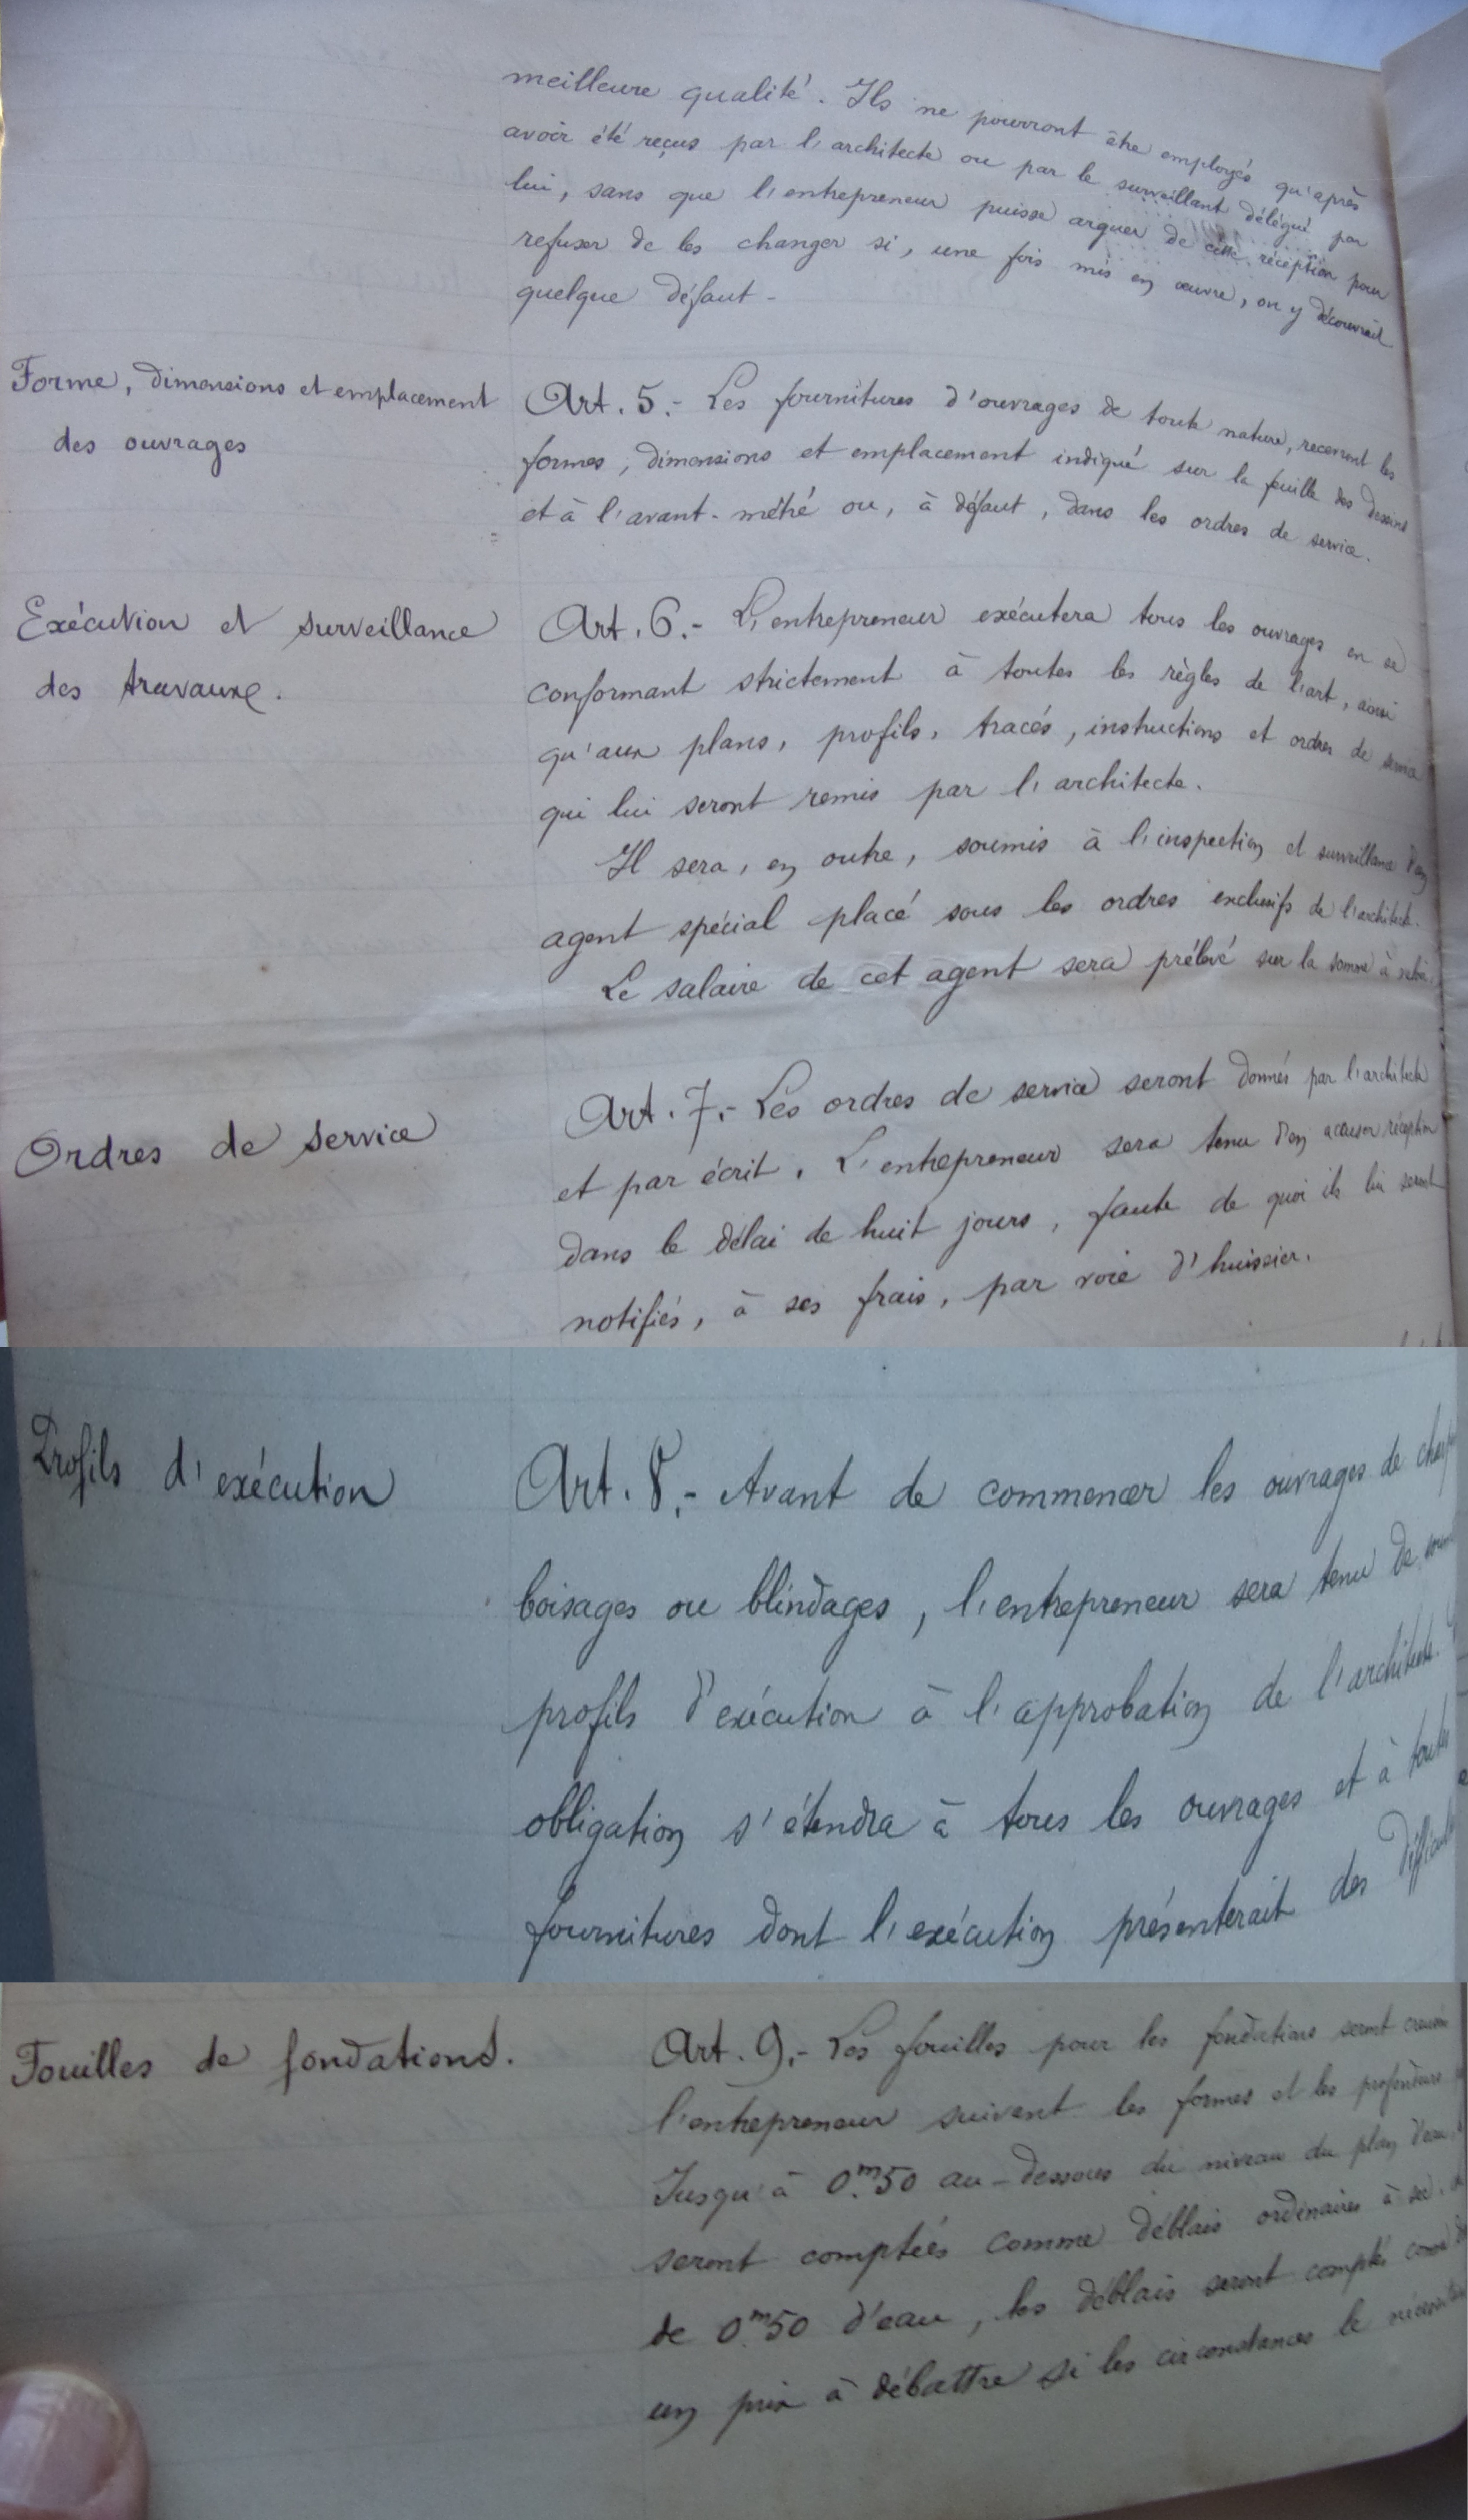 meilleure qualité. Ils ne pourront être employés qu'après
avoir été reçus par l'architecte ou par le surveillant délégué par
lui, sans que l'entrepreneur puisse arguer de cette réception pour
refuser de les changer si, une fois mis en œuvre, on y découvrait
quelque défaut -
Forme, dimensions et emplacement
des ouvrages
Art. 5.- Les fournitures d'ouvrages de toute nature, recevront les
formes, dimensions et emplacement indiqué sur la feuille des dessins
et à l'avant-métré ou, à défaut, dans les ordres de service.
Exécution et surveillance
des travaux.
Art. 6.- L'entrepreneur exécutera tous les ouvrages en se
conformant strictement à toutes les règles de l'art, ainsi
qu'aux plans, profils, tracés, instructions et ordres de service
qui lui seront remis par l'architecte.
Il sera, en outre, soumis à l'inspection et surveillance d'un
agent spécial placé sous les ordres exclusifs de l'architecte.
Le salaire de cet agent sera prélevé sur la somme à
Ordres de service
Art. 7.- Les ordres de service seront donnés par l'architecte
et par écrit. L'entrepreneur sera tenu d'en accuser réception
dans le délai de huit jours, faute de quoi ils lui seront
notifiés, à ses frais, par voie d'huissier.
Profils d'exécution
Art. 8.- Avant de commencer les ouvrages de
boisages ou blindages, l'entrepreneur sera tenu de
profils d'exécution à l'approbation de l'architecte.
obligation s'étendra à tous les ouvrages et à toutes
fournitures dont l'exécution présenterait des
Fouilles de fondations.
Art. 9.- Les fouilles pour les fondations seront
l'entrepreneur suivant les formes et les profondeurs
Jusqu'à 0.m50 au-dessous du niveau du plan d'eau,
seront comptées comme déblais ordinaires à sec.
de 0.m50 d'eau, les déblais seront comptés comme
un prix à débattre si les circonstances le